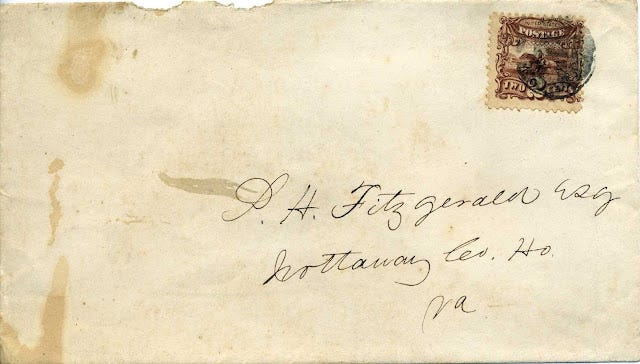 POSTAGE
TWO CENTS
P. H. Fitzgerald Esq
Nottaway Co. Ho.
Va